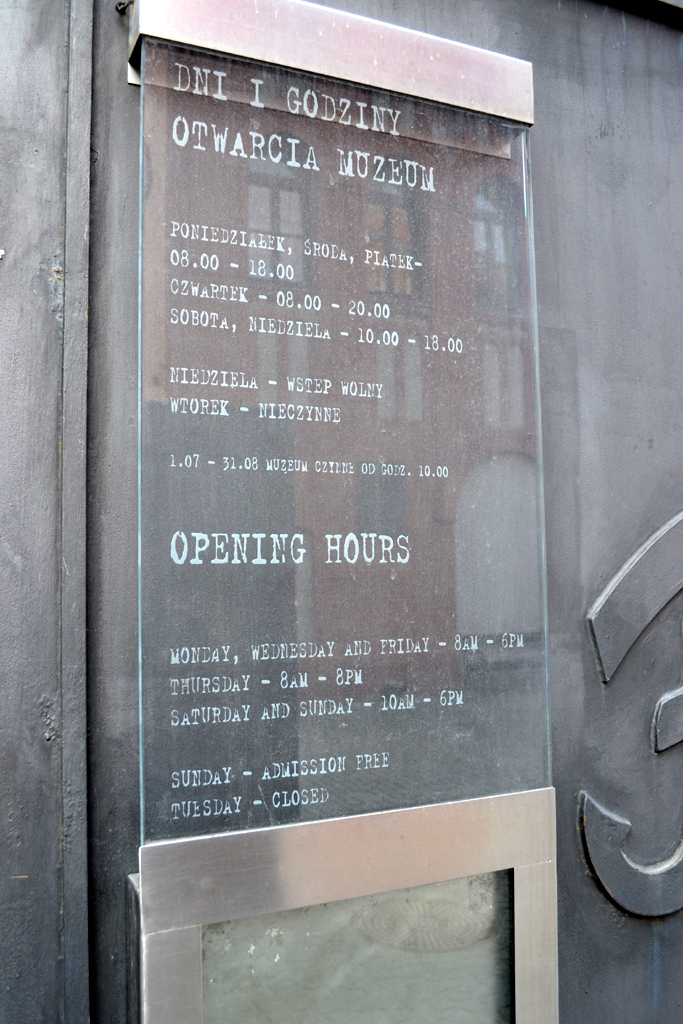 DNI I GODZINY
OTWARCIA MUZEUM
PONIEDZIAŁEK, ŚRODA, PIĄTEK-
08.00 - 18.00
CZWARTEK - 08.00 - 20.00
SOBOTA, NIEDZIELA - 10.00 - 18.00
NIEDZIELA - WSTĘP WOLNY
WTOREK - NIECZYNNE
1.07 - 31.08 MUZEUM CZYNNE OD GODZ. 10.00
OPENING HOURS
MONDAY, WEDNESDAY AND FRIDAY - 8AM - 6PM
THURSDAY - 8AM - 8PM
SATURDAY AND SUNDAY - 10AM - 6PM
SUNDAY - ADMISSION FREE
TUESDAY - CLOSED